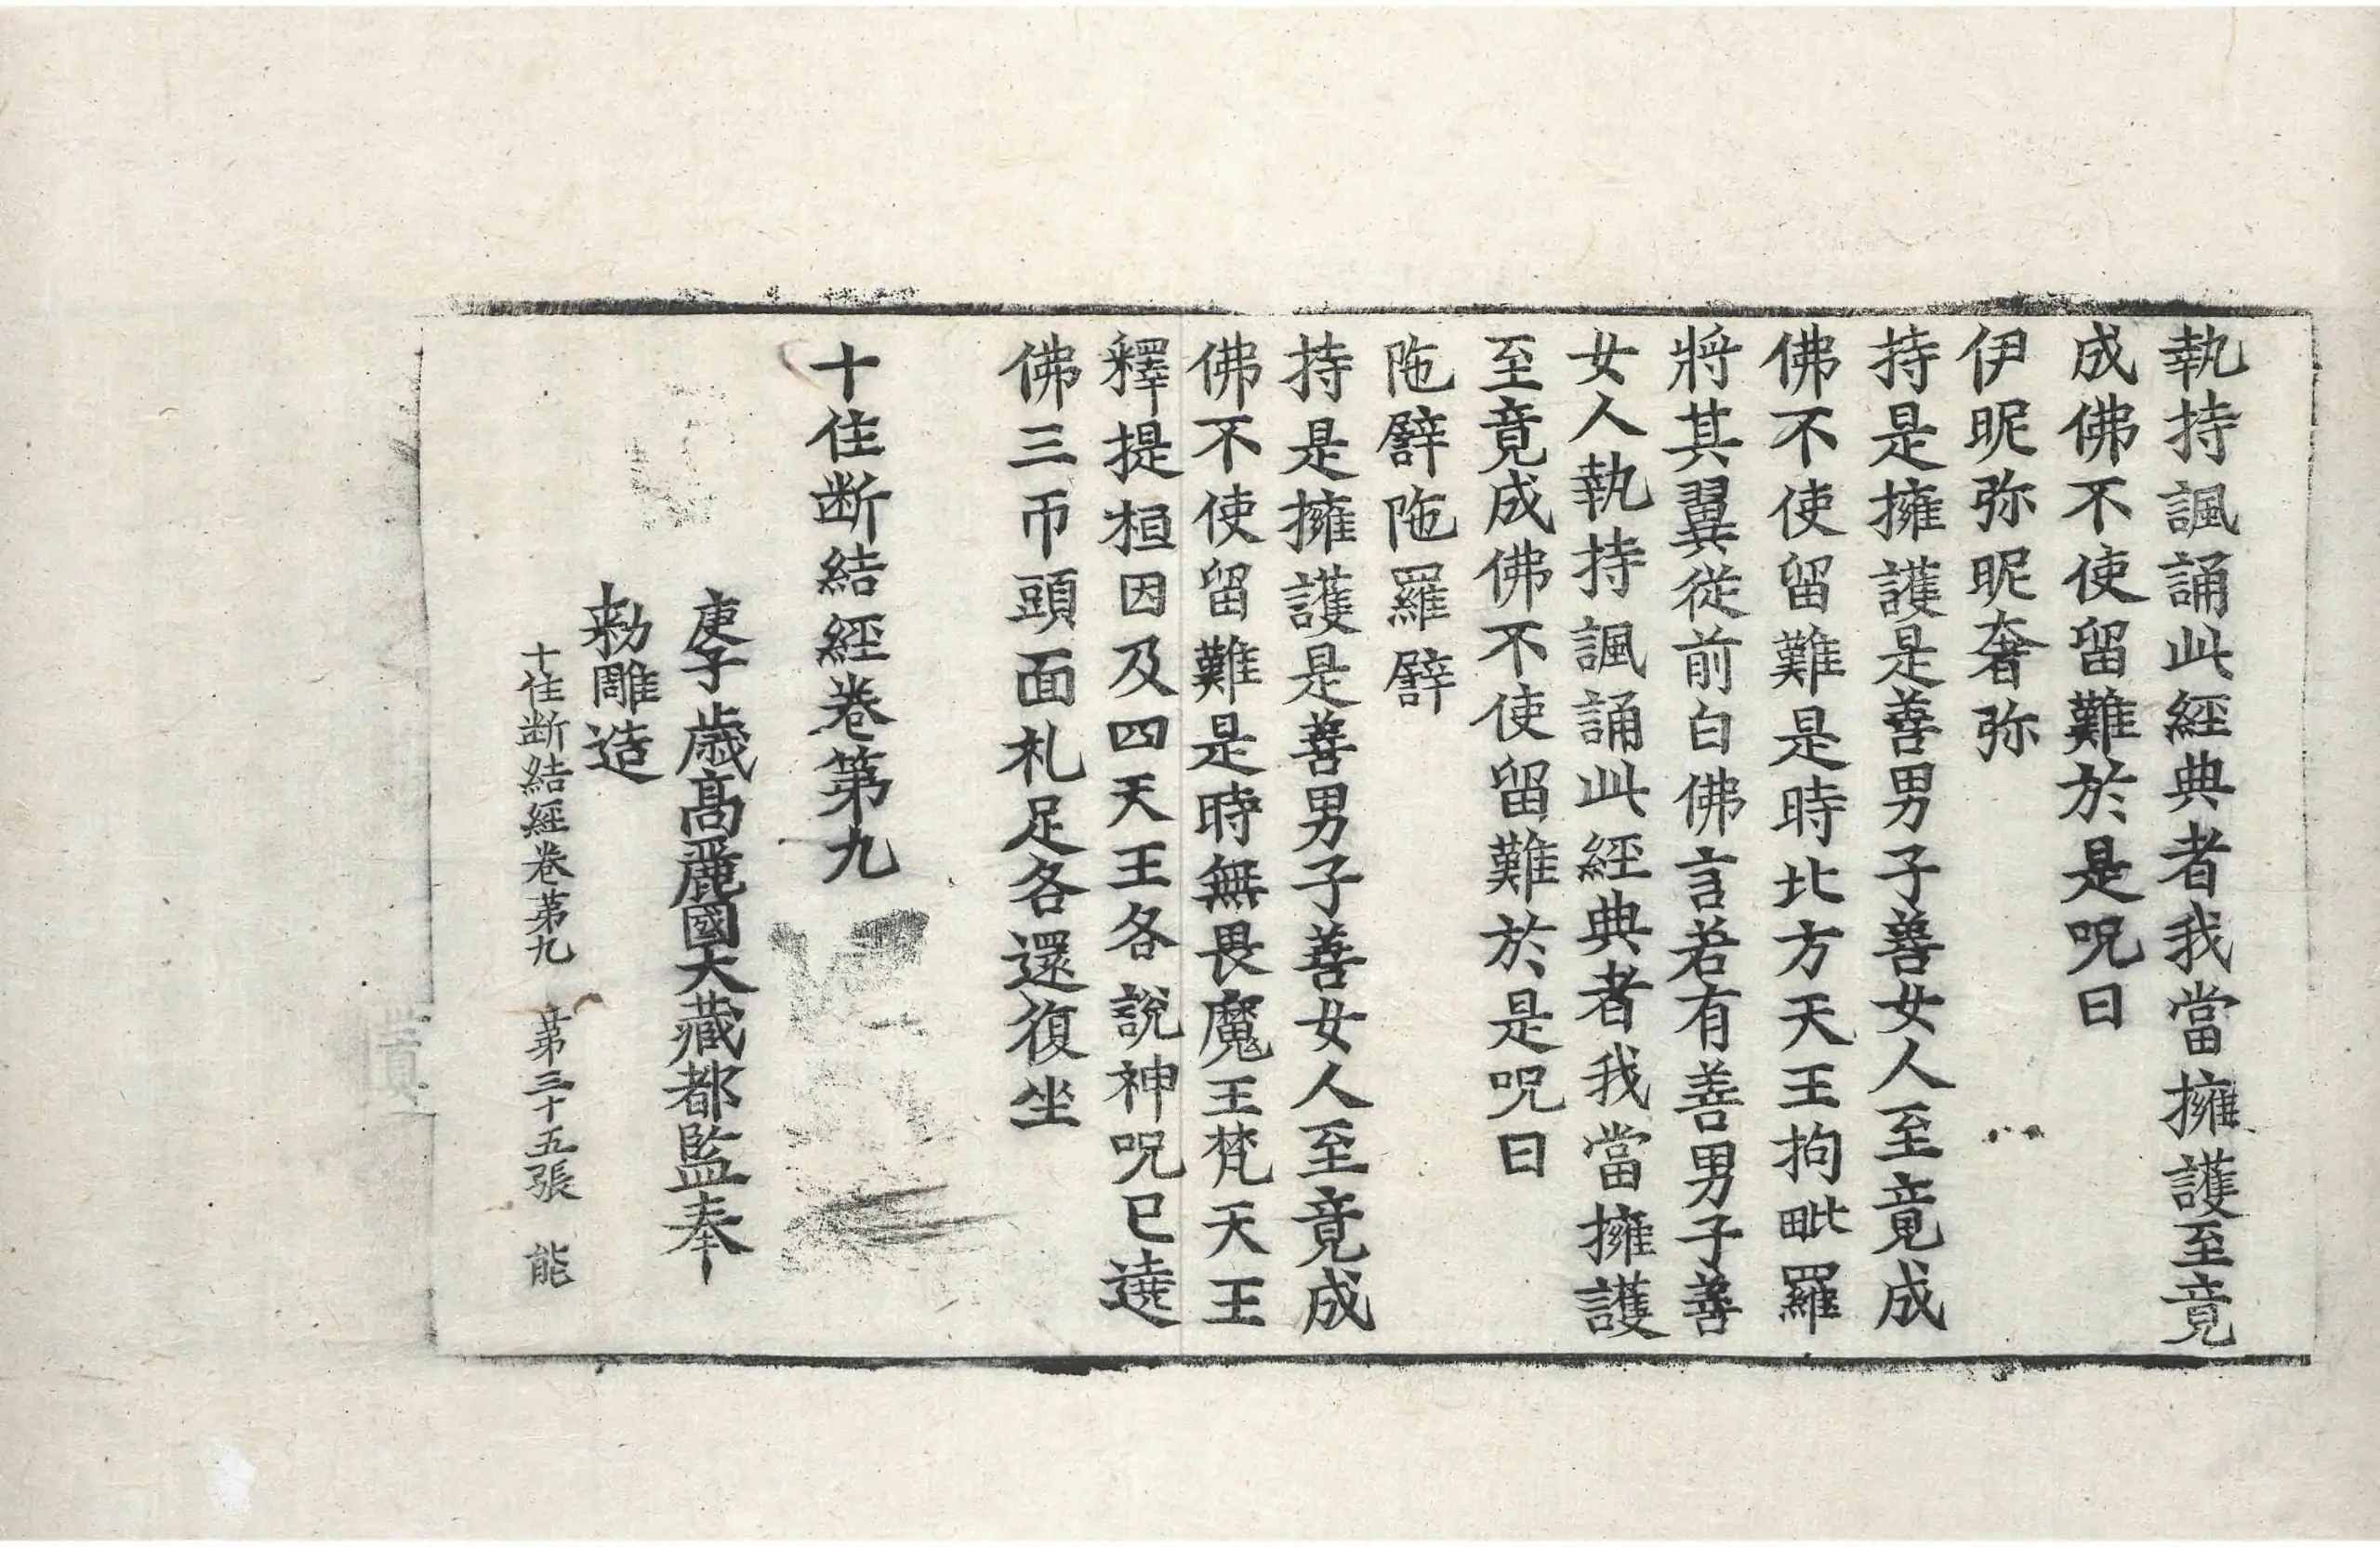 執持諷誦此經典者我當擁護至竟
成佛不使留難於是呪曰
伊昵弥昵奢弥
持是擁護是善男子善女人至竟成
佛不使留難是時北方天王拘毗羅
將其翼從前白佛言若有善男子善
女人執持諷誦此經典者我當擁護
至竟成佛不使留難於是呪曰
陁礔陁羅礔
持是擁護是善男子善女人至竟成
佛不使留難是時無畏魔王梵天王
釋提桓因及四天王各說神呪已遶
佛三帀頭面札足各還復坐
十住断結經卷第九
庚子歲高麗國大藏都監奉
勑雕造
十住断結經卷第九 第三十五張 能